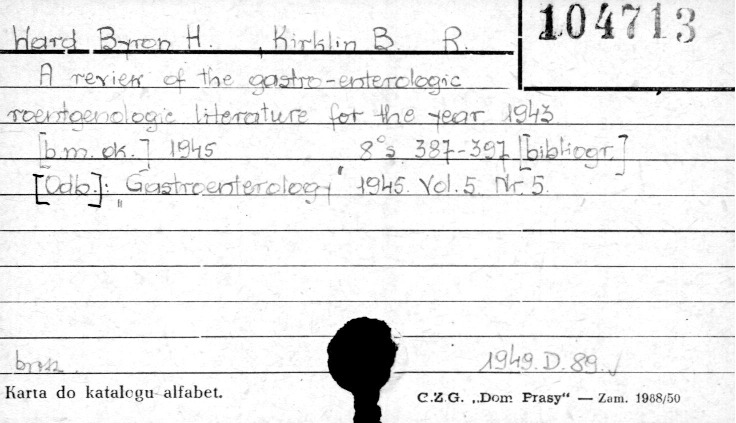 104713
Hard Byron H. , Kirklin B. R.
A review of the gastro-enterologic
roentgenologic literature for the year 1943
[b.m. ok.] 1945 8° s. 387-397 [bibliogr.]
[Odb.]: "Gastroenterology" 1945. Vol. 5. Nr. 5.
brosz. 1949. D. 89.
Karta do katalogu alfabet.
C.Z.G. „Dom Prasy“ — Zam. 1968/50